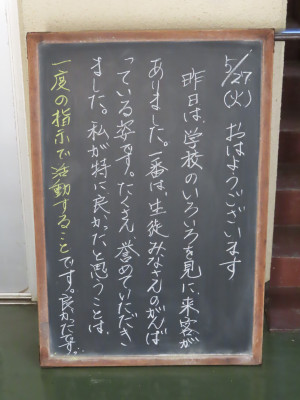 5/27(火) おはようございます
昨日は、学校のいろいろを見に、来客が
ありました。一番は、生徒みなさんのがんば
っている姿です。たくさん誉めていただき
ました。私が特に良かったと思うことは、
一度の指示で活動することです。良かったです。